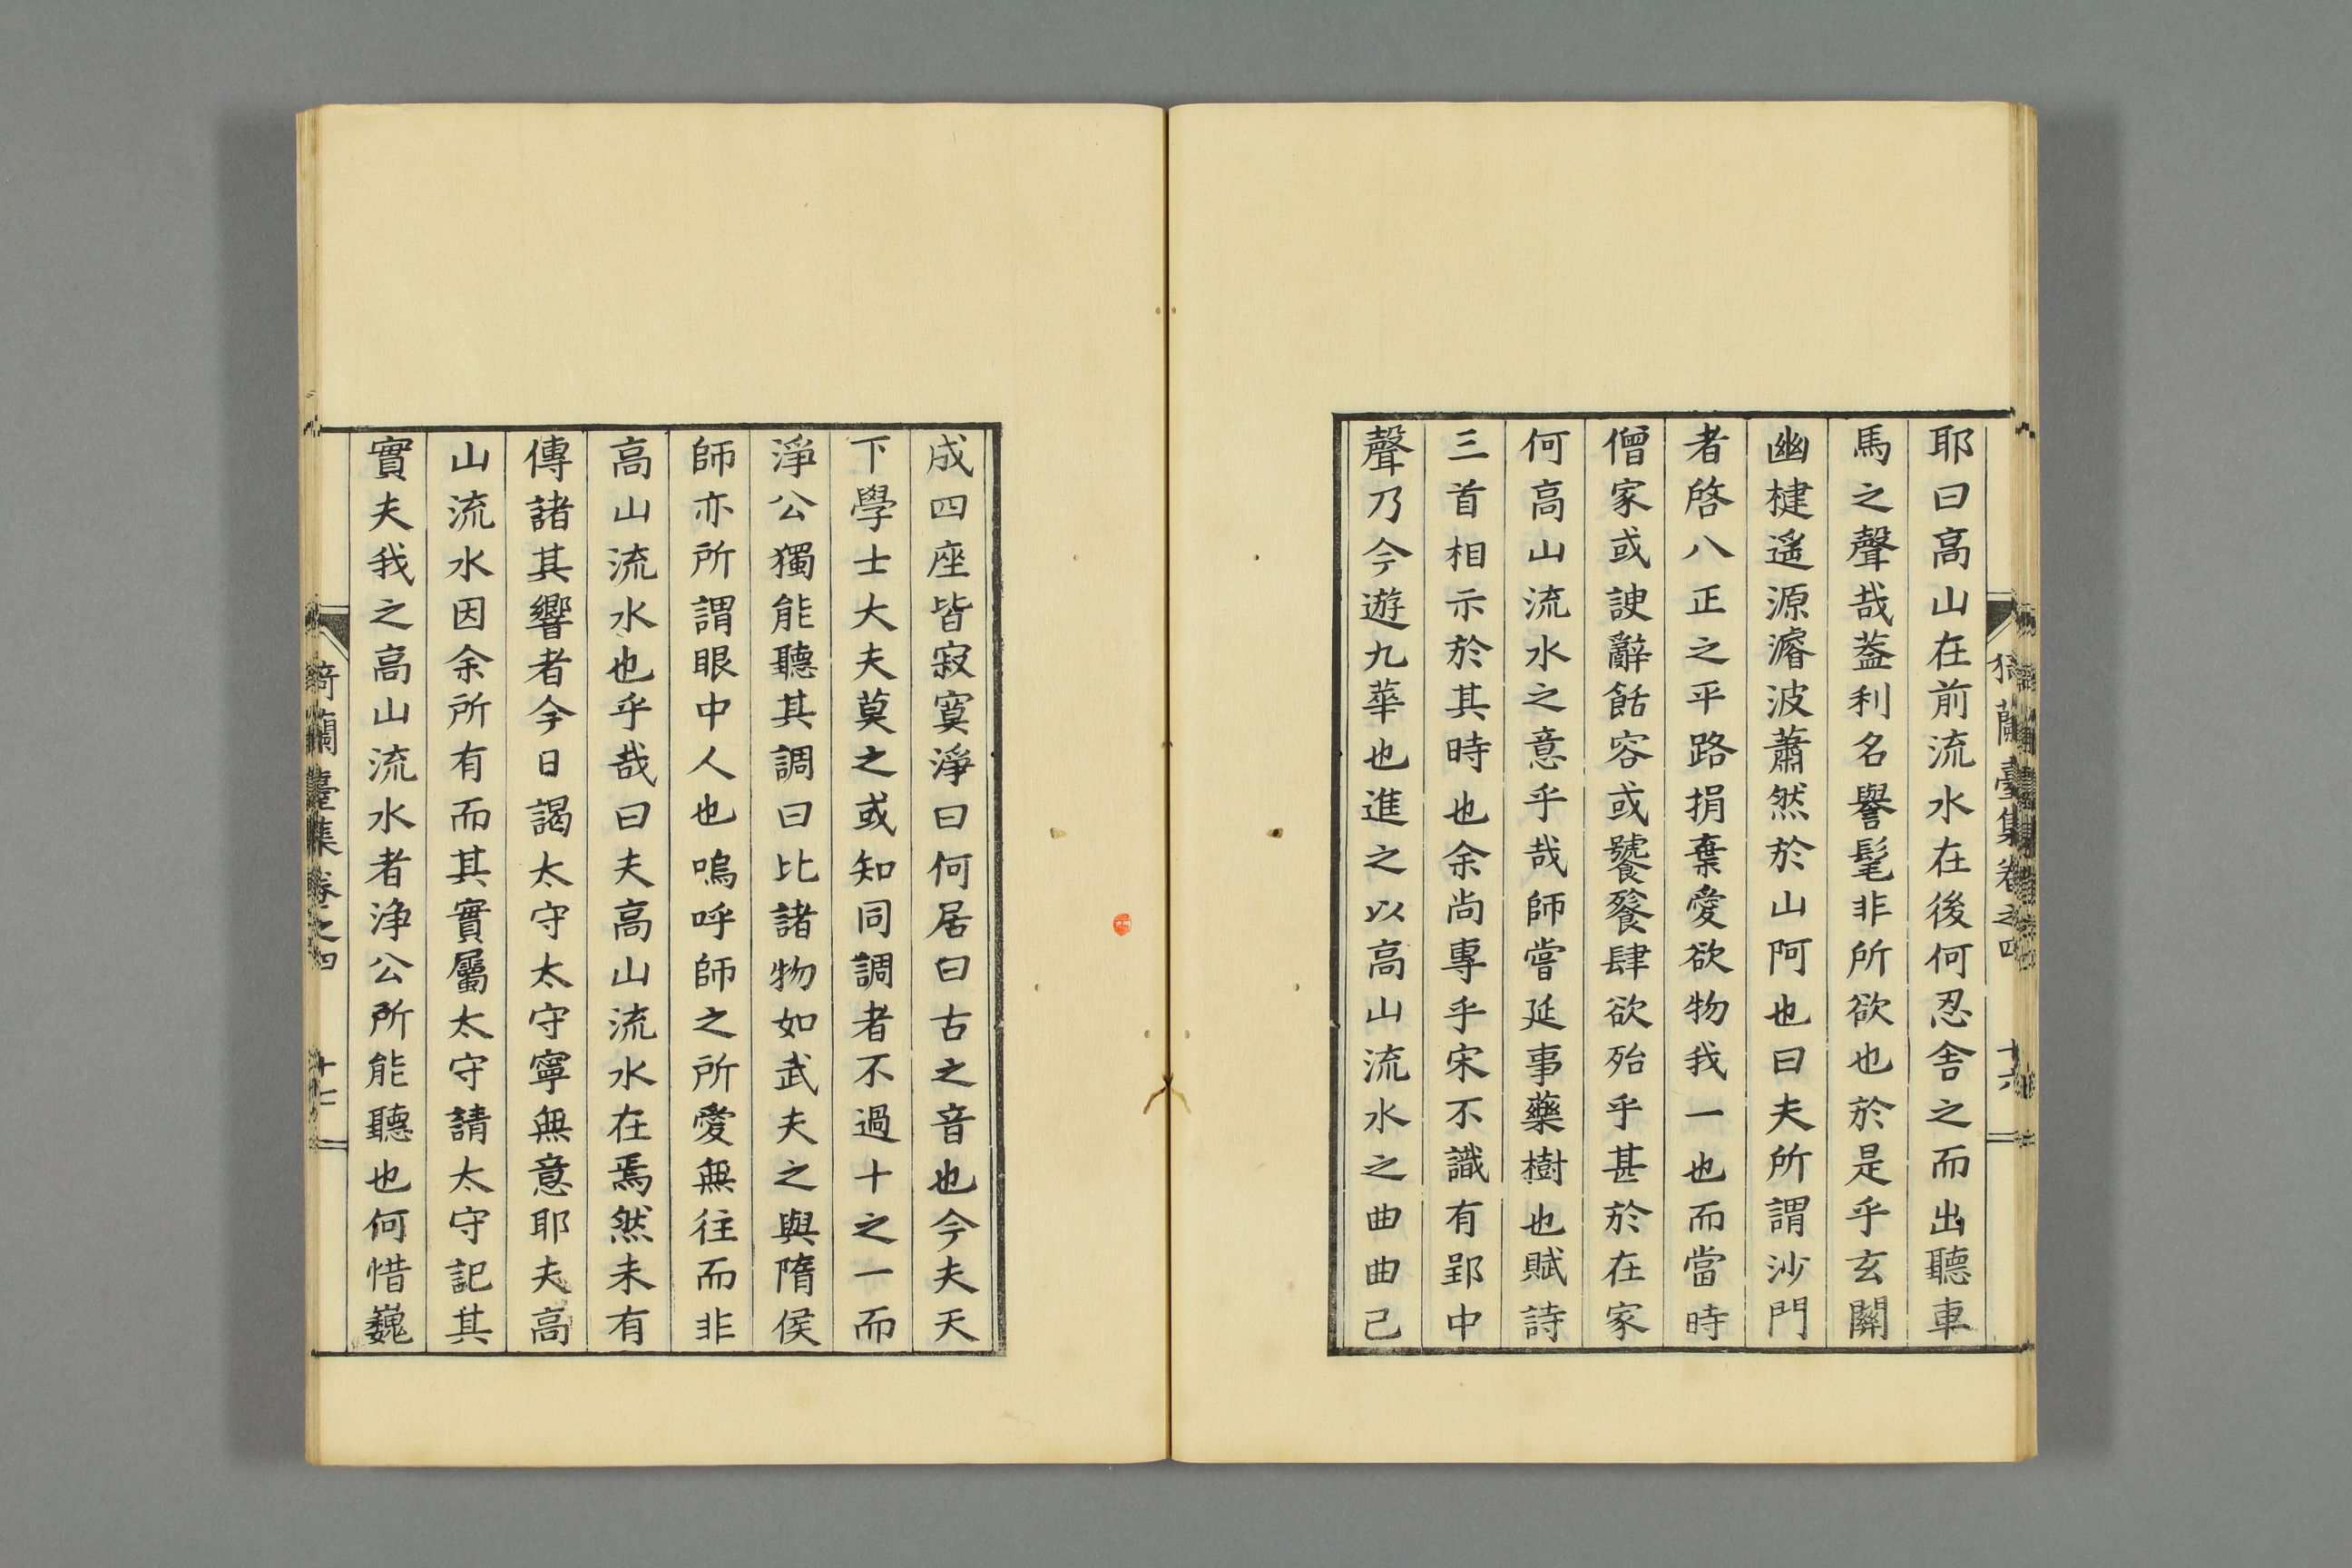 耶曰高山在前流水在後何忍舍之而出聽車
馬之聲哉葢利名譽髦非所欲也於是乎玄關
幽楗遥源濬波蕭然於山阿也曰夫所謂沙門
者啓八正之平路捐棄愛欲物我一也而當時
僧家或諛辭餂容或饕餮肆欲殆乎甚於在家
何高山流水之意乎哉師嘗延事藥樹也賦詩
三首相示於其時也余尚專乎宋不識有郢中
聲乃今遊九華也進之以高山流水之曲曲已
蘭臺集卷之四 十六
成四座皆寂寞淨曰何居曰古之音也今夫天
下學士大夫莫之或知同調者不過十之一而
淨公獨能聽其調曰比諸物如武夫之與隋侯
師亦所謂眼中人也嗚呼師之所愛無往而非
高山流水也乎哉曰夫高山流水在焉然未有
傳諸其響者今日謁太守太守寧無意耶夫高
山流水因余所有而其實屬太守請太守記其
實夫我之高山流水者浄公所能聽也何惜巍
蘭臺集卷之四 十七